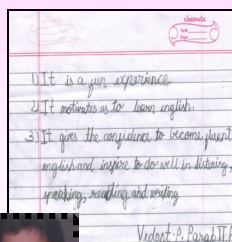 classmate
Date
Page
1) It is a fun experience
2) It motivates us to learn english.
3) It gives the confidence to become fluent
english and inspire to do well in listening,
speaking, reading and writing
Vedant. P. Parab